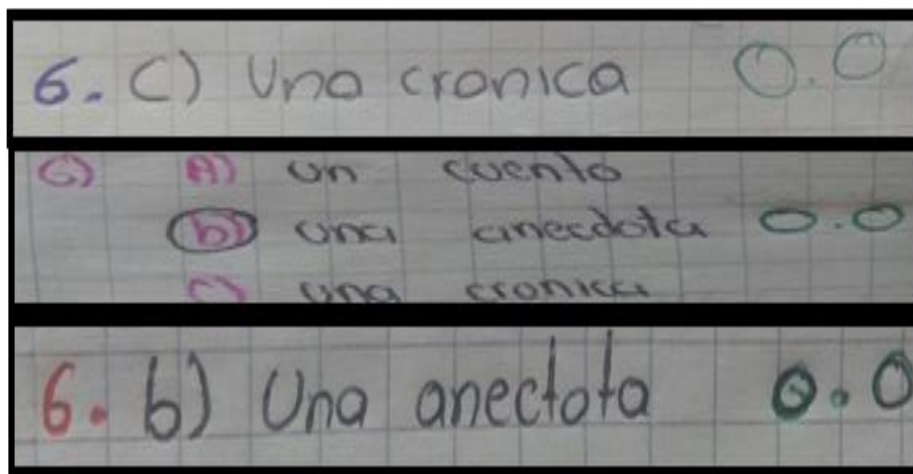 6. C) Una cronica 0.0
6) A) un cuento
b) una anecdota 0.0
c) una cronica
6. b) Una anectota 0.0